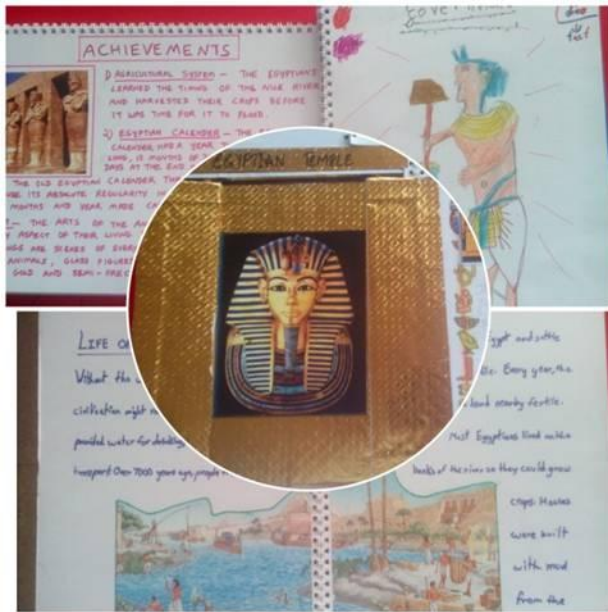 ACHIEVEMENTS
1) AGRICULTURAL SYSTEM – THE EGYPTIANS
LEARNED THE TIMING OF THE NILE RIVER
AND HARVESTED THEIR CROPS BEFORE
IT WAS TIME FOR IT TO FLOOD.
2) EGYPTIAN CALENDER – THE
CALENDER HAD A YEAR
LONG, 12 MONTHS OF
DAYS AT THE END
THE OLD EGYPTIAN CALENDER
ITS ABSOLUTE REGULARITY
MONTHS AND YEAR MADE
– THE ARTS OF THE
ASPECT OF THEIR LIVING
ARE SCENES OF
ANIMALS, GLASS FIGURES
GOLD AND SEMI-
EGYPTIAN TEMPLE
LIFE
Without the
civilisation might
provided water for drinking
transport Over 7000 years ago, people
Egypt and settle
Every year, the
land nearby fertile.
Most Egyptians lived on the
banks of the river so they could grow
crops. Houses
were built
with mud
from the